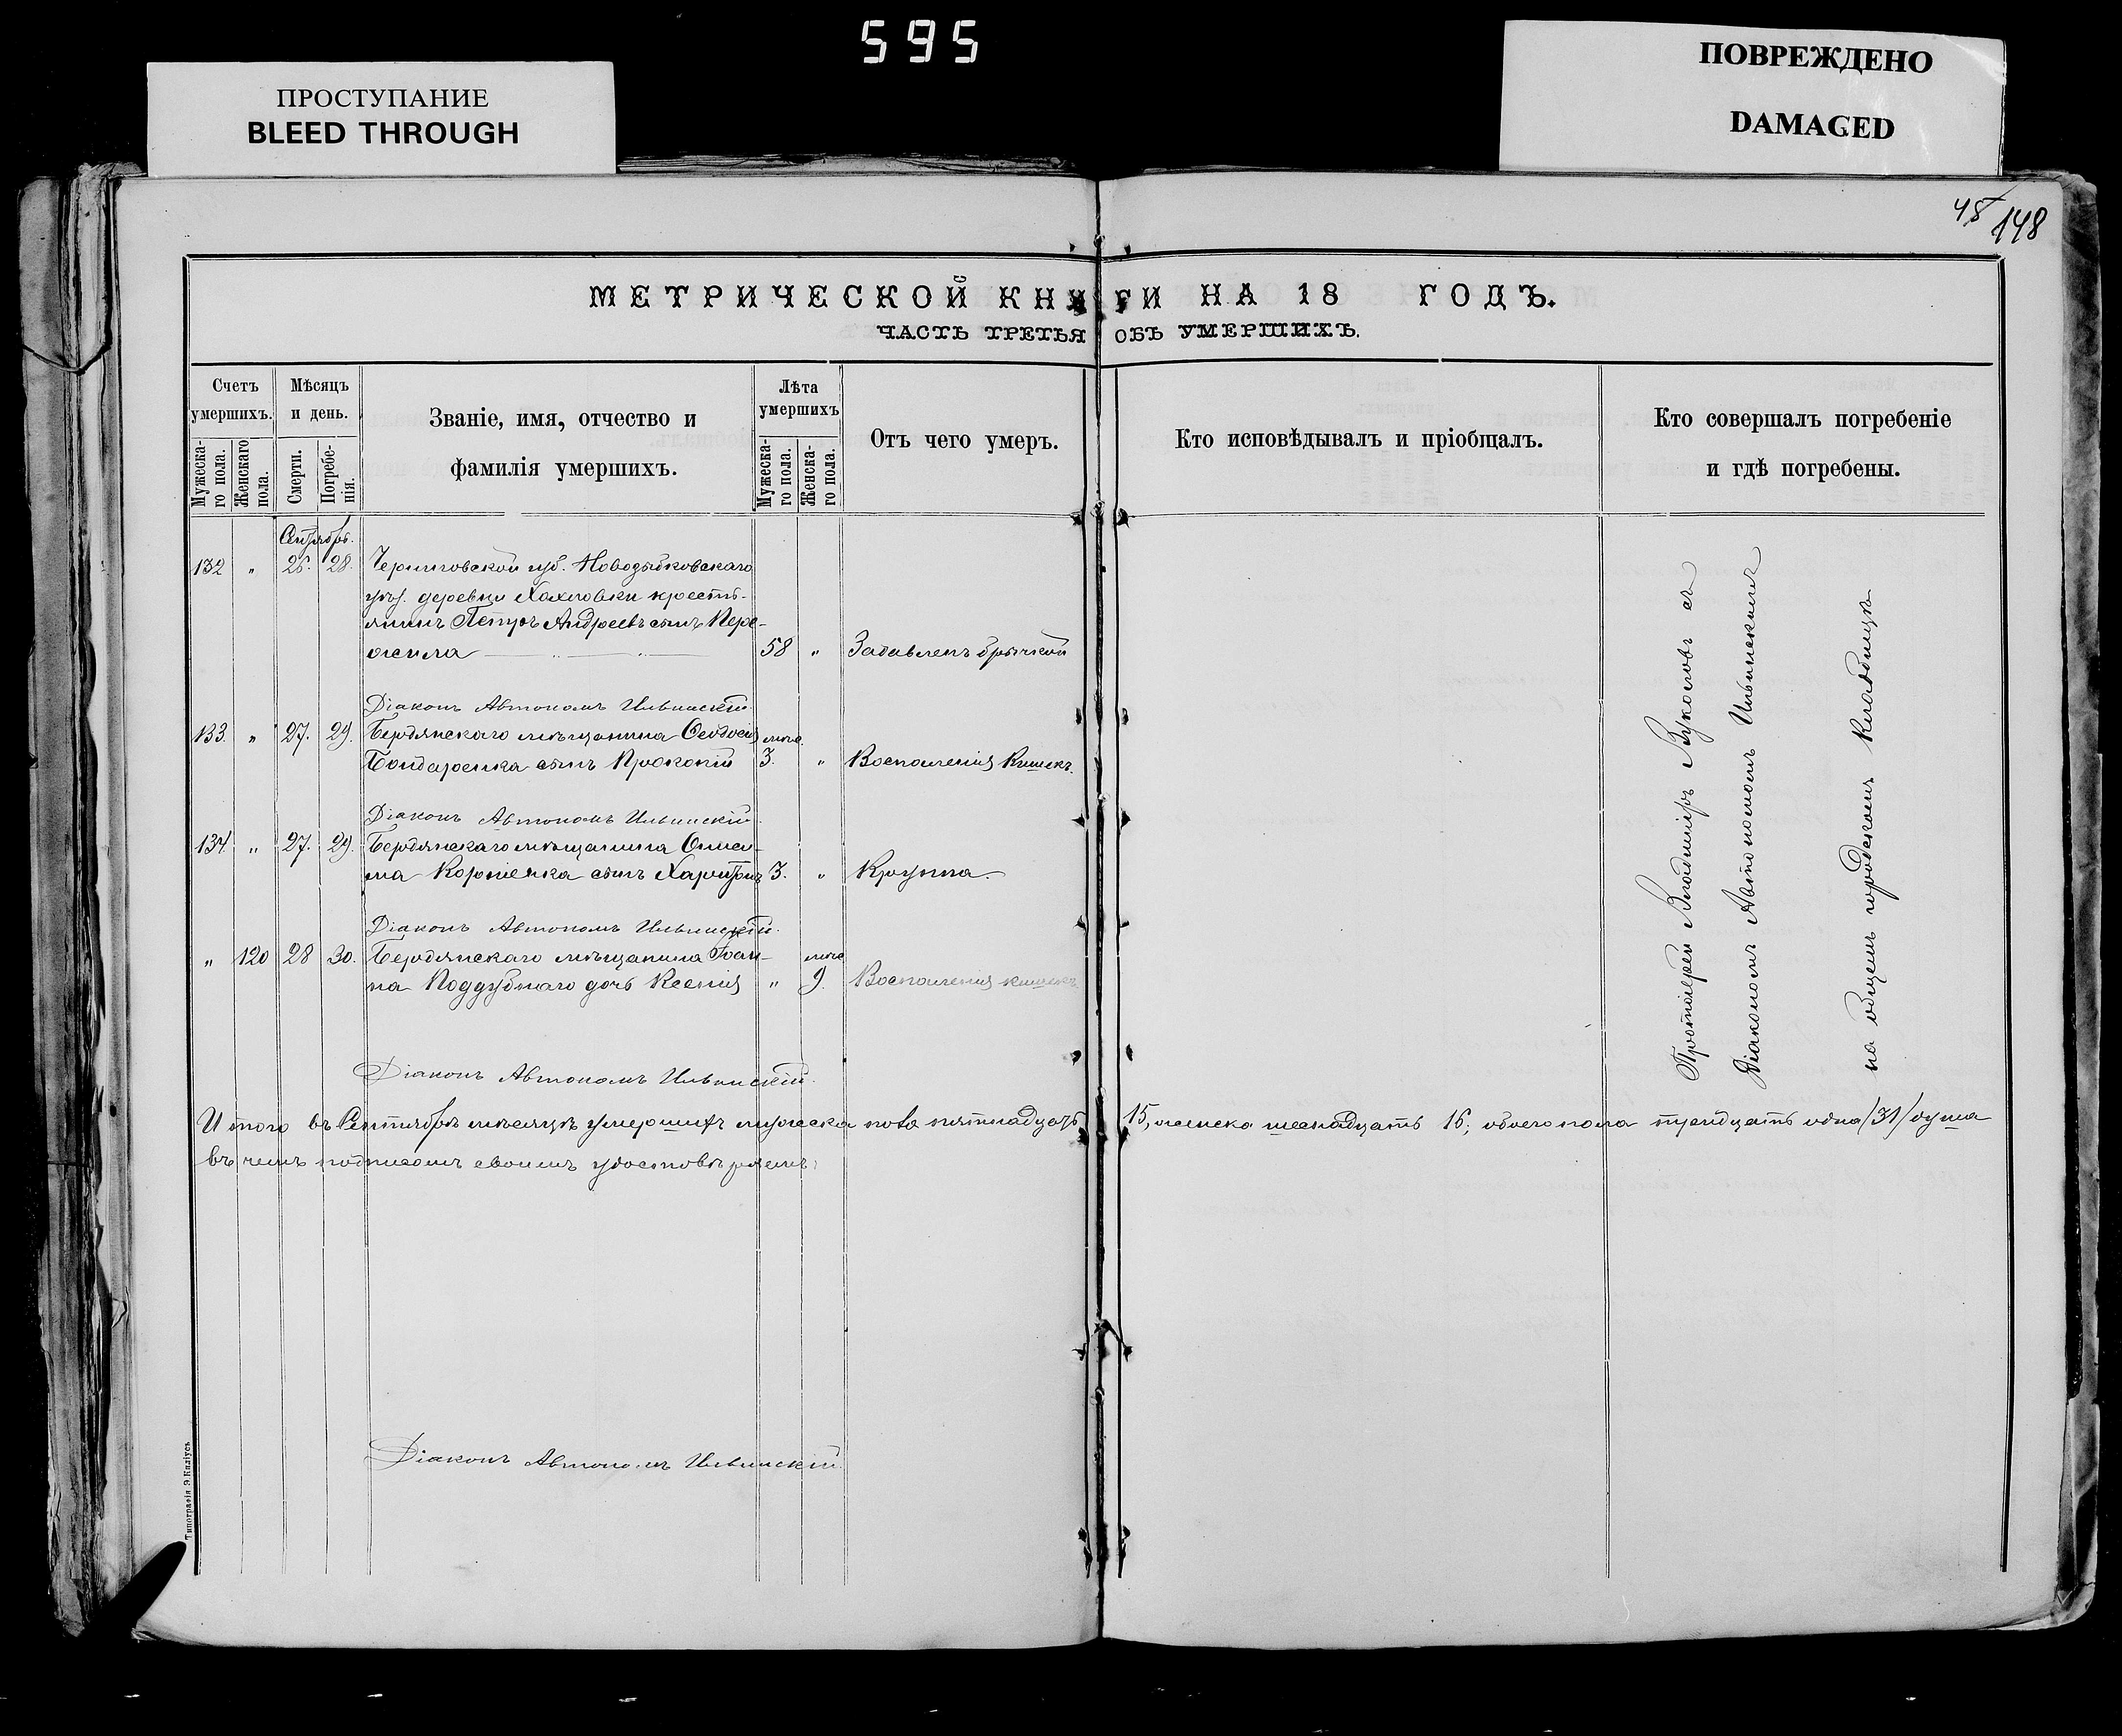 595
ПРОСТУПАНИЕ
BLEED THROUGH
ПОВРЕЖДЕНО
DAMAGED
48 148
МЕТРИЧЕСКОЙ КНИГИ НА 18 ГОДЪ.
ЧАСТЬ ТРЕТЬЯ ОБЪ УМЕРШИХЪ.
Счетъ умершихъ.
Мужеска-го пола.
Женскаго пола.
Мѣсяцъ и день.
Смерти.
Погребе-нія.
Званіе, имя, отчество и
фамилія умершихъ.
Лѣта умершихъ
Мужеска-го пола.
Женска-го пола.
Отъ чего умеръ.
Кто исповѣдывалъ и пріобщалъ.
Кто совершалъ погребеніе
и гдѣ погребены.
Сентябрь.
132 " 26. 28. Черниговской губ. Новозыбковскаго
уѣз. деревни Хохловки кресть-
янинъ Петръ Андреевъ сынъ Пере-
жила 58 " Задавленъ бричкой
Діаконъ Автономъ Ильинскій
133. " 27. 29. Бердянскаго мѣщанина Ѳеодосія мѣс.
Бондаренка сынъ Прокопій 3. " Воспаленія кишекъ.
Діаконъ Автономъ Ильинскій.
134 " 27. 29. Бердянскаго мѣщанина Ониси-
ма Корніенка сынъ Харитонъ 3. " Круппа
Діаконъ Автономъ Ильинскій.
" 120 28 30. Бердянскаго мѣщанина Іоан- мѣс.
на Поддубнаго дочь Ксенія " 9. Воспаленія кишекъ
Діаконъ Автономъ Ильинскій.
Протоіерей Владиміръ Вуколовъ съ
Діакономъ Автономомъ Ильинскимъ
на общемъ городскомъ кладбищѣ
Итого въ Сентябрѣ мѣсяцѣ умершихъ мужеска пола пятнадцать 15, женска шеснадцать 16; обоего пола тридцать одна /31/ душа
въ чемъ подписомъ своимъ удостовѣряемъ:
Діаконъ Автономъ Ильинскій.
Типографія Э. Киліусъ